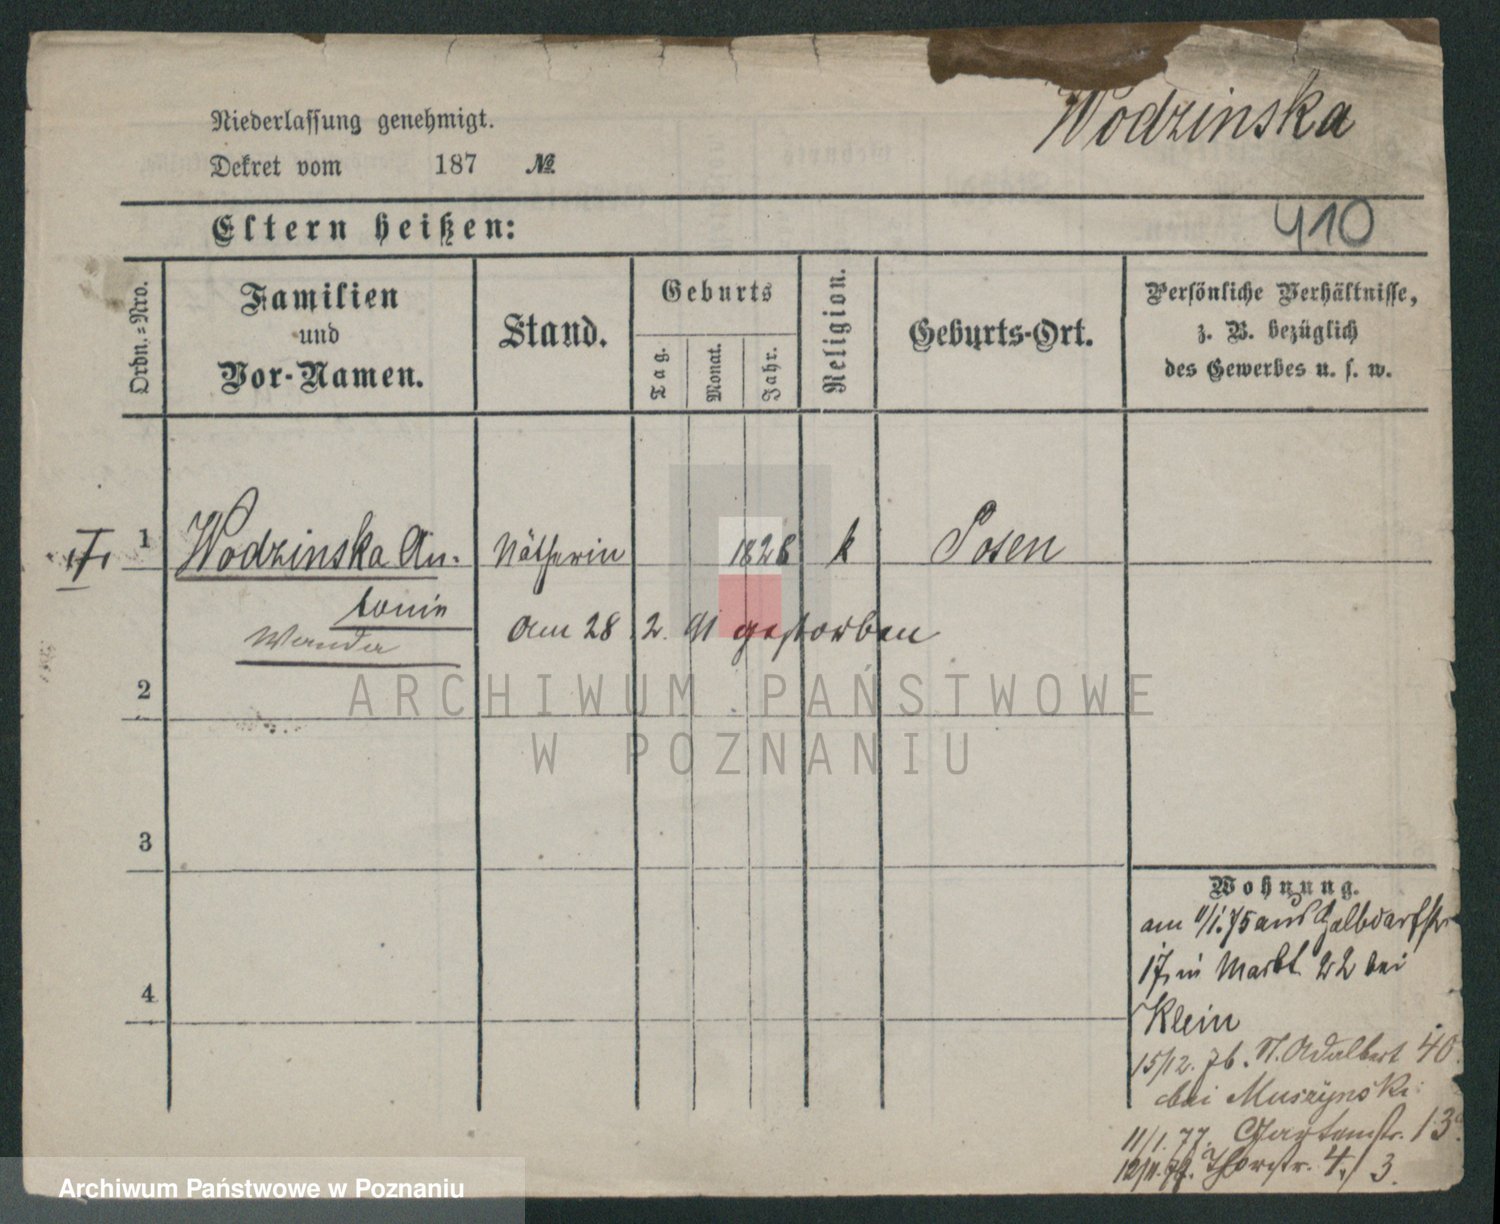 Niederlassung genehmigt.
Wodzinska
Dekret vom 187 №
Eltern heißen:
410
Ordn.=Nro.
Familien
und
Vor-Namen.
Stand.
Geburts
Tag.
Monat.
Jahr.
Religion.
Geburts-Ort.
Persönliche Verhältnisse,
z. B. bezüglich
des Gewerbes u. s. w.
1 Wodzinska An- Nätherin 1828 k Posen
tonie
Wanda
am 28 2. 91 gestorben
2
3
4
Wohnung.
am 11/1.75 aus Halbdorfstr
17, in Markt 22 bei
Klein
15/12. 76. St. Adalbert 40.
bei Muszynski
11/1. 77. Gartenstr. 13
Thorstr. 4/3.
ARCHIWUM PAŃSTWOWE
W POZNANIU
Archiwum Państwowe w Poznaniu